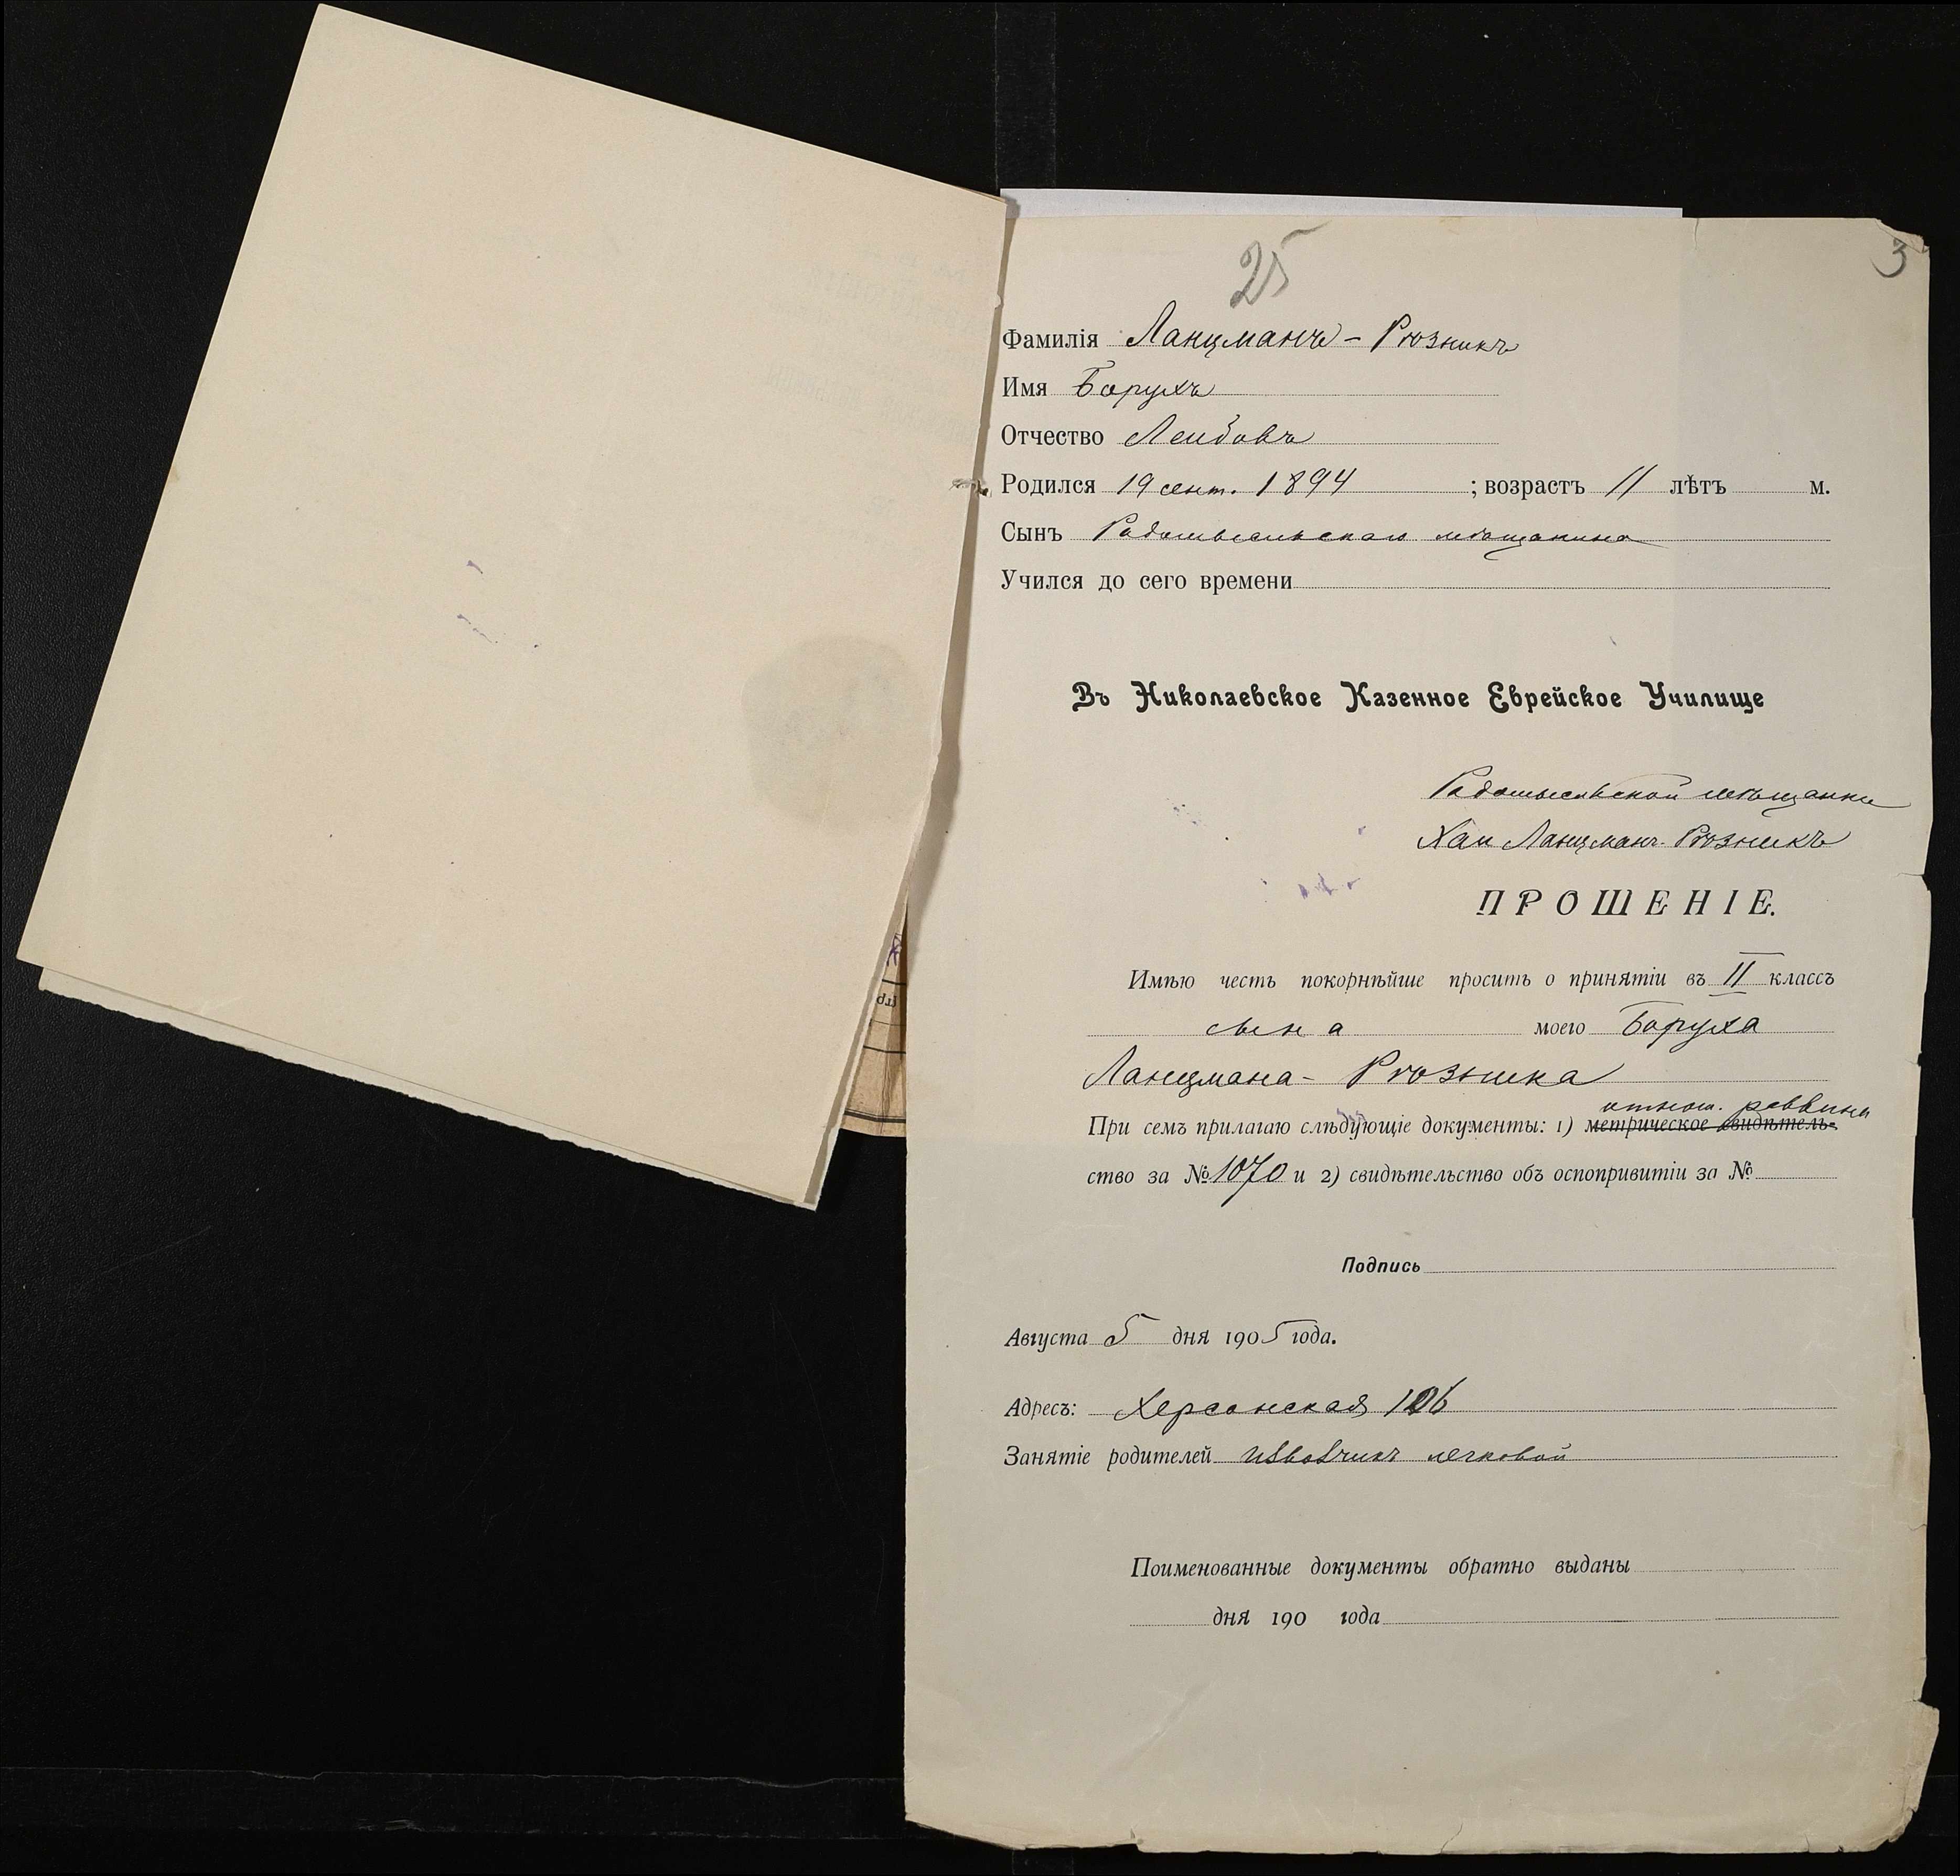 25
3
Фамилія Ланцманъ - Рѣзникъ
Имя Борухъ
Отчество Лейбовъ
Родился 19 сент. 1894 ; возрастъ 11 лѣтъ м.
Сынъ Радомысльскаго мѣщанина
Учился до сего времени
Въ Николаевское Казенное Еврейское Училище
Радомысльской мѣщанки
Хаи Ланцманъ-Рѣзникъ
ПРОШЕНІЕ.
Имѣю честь покорнѣйше просить о принятіи въ II классъ
сына моего Боруха
Ланцмана - Рѣзника
отнош. раввина
При семъ прилагаю слѣдующіе документы: 1) метрическое свидѣтель-
ство за № 1070 и 2) свидѣтельство объ оспопривитіи за №
Подпись
Августа 5 дня 1905 года.
Адресъ: Херсонская 106
Занятіе родителей извозчикъ легковой
Поименованные документы обратно выданы
дня 190 года